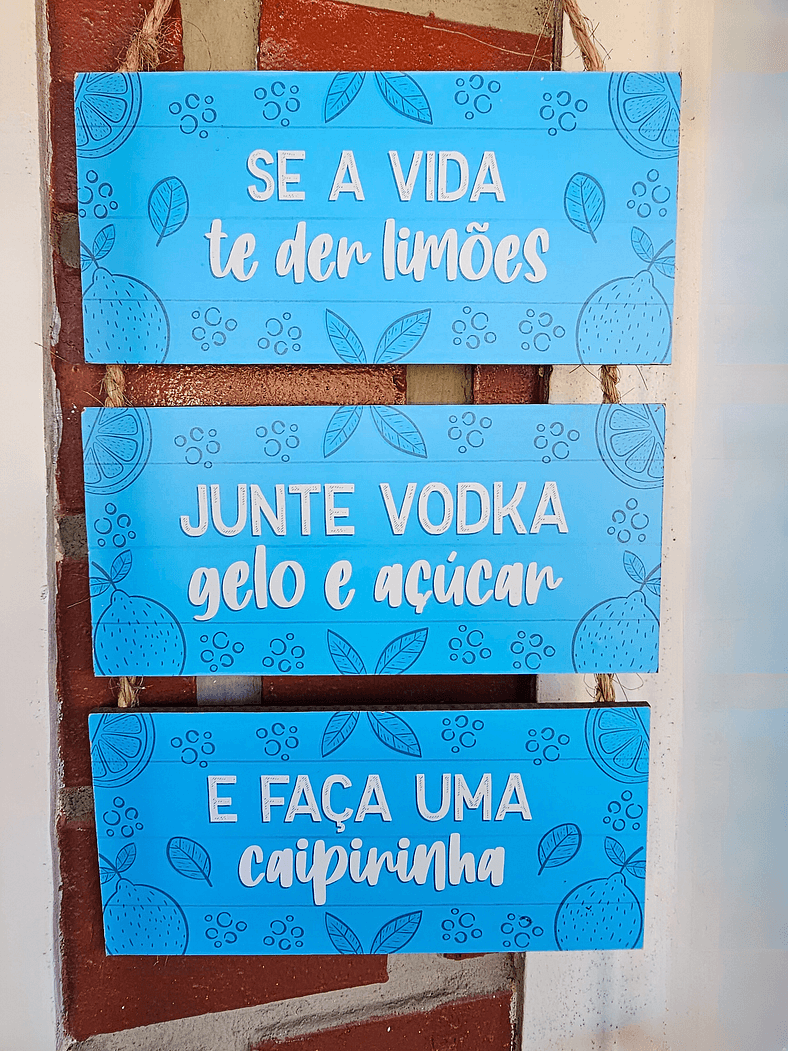 SE A VIDA
te der limões
JUNTE VODKA
gelo e açúcar
E FAÇA UMA
caipirinha